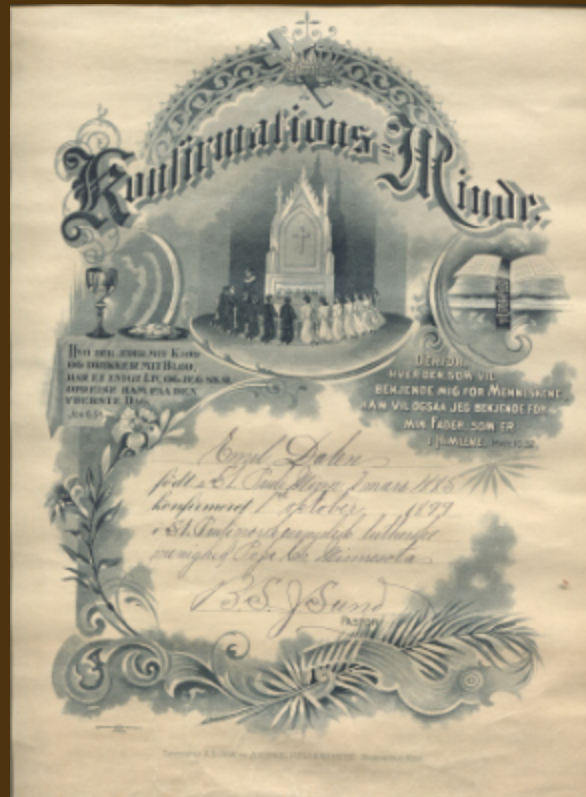 Konfirmations=Minde.
HVO DER ÆDER MIT KJØD
OG DRIKKER MIT BLOD,
HAR ET EVIGT LIV, OG JEG SKAL
OPREISE HAM PAA DEN
YDERSTE DAG.
JOH 6.54.
DERFOR,
HVER DEN SOM VIL
BEKJENDE MIG FOR MENNISKENE,
HAM VIL OGSAA JEG BEKJENDE FOR
MIN FADER, SOM ER
I HIMLENE. MATH. 10.32.
Emil Dalen
født i St. Pauli Minn. 7 mars 1885
konfirmeret 1 oktober 1899
i St. Pauli norsk evangelisk lutherske
menighed Minnesota
B. S. J Sund
PASTOR